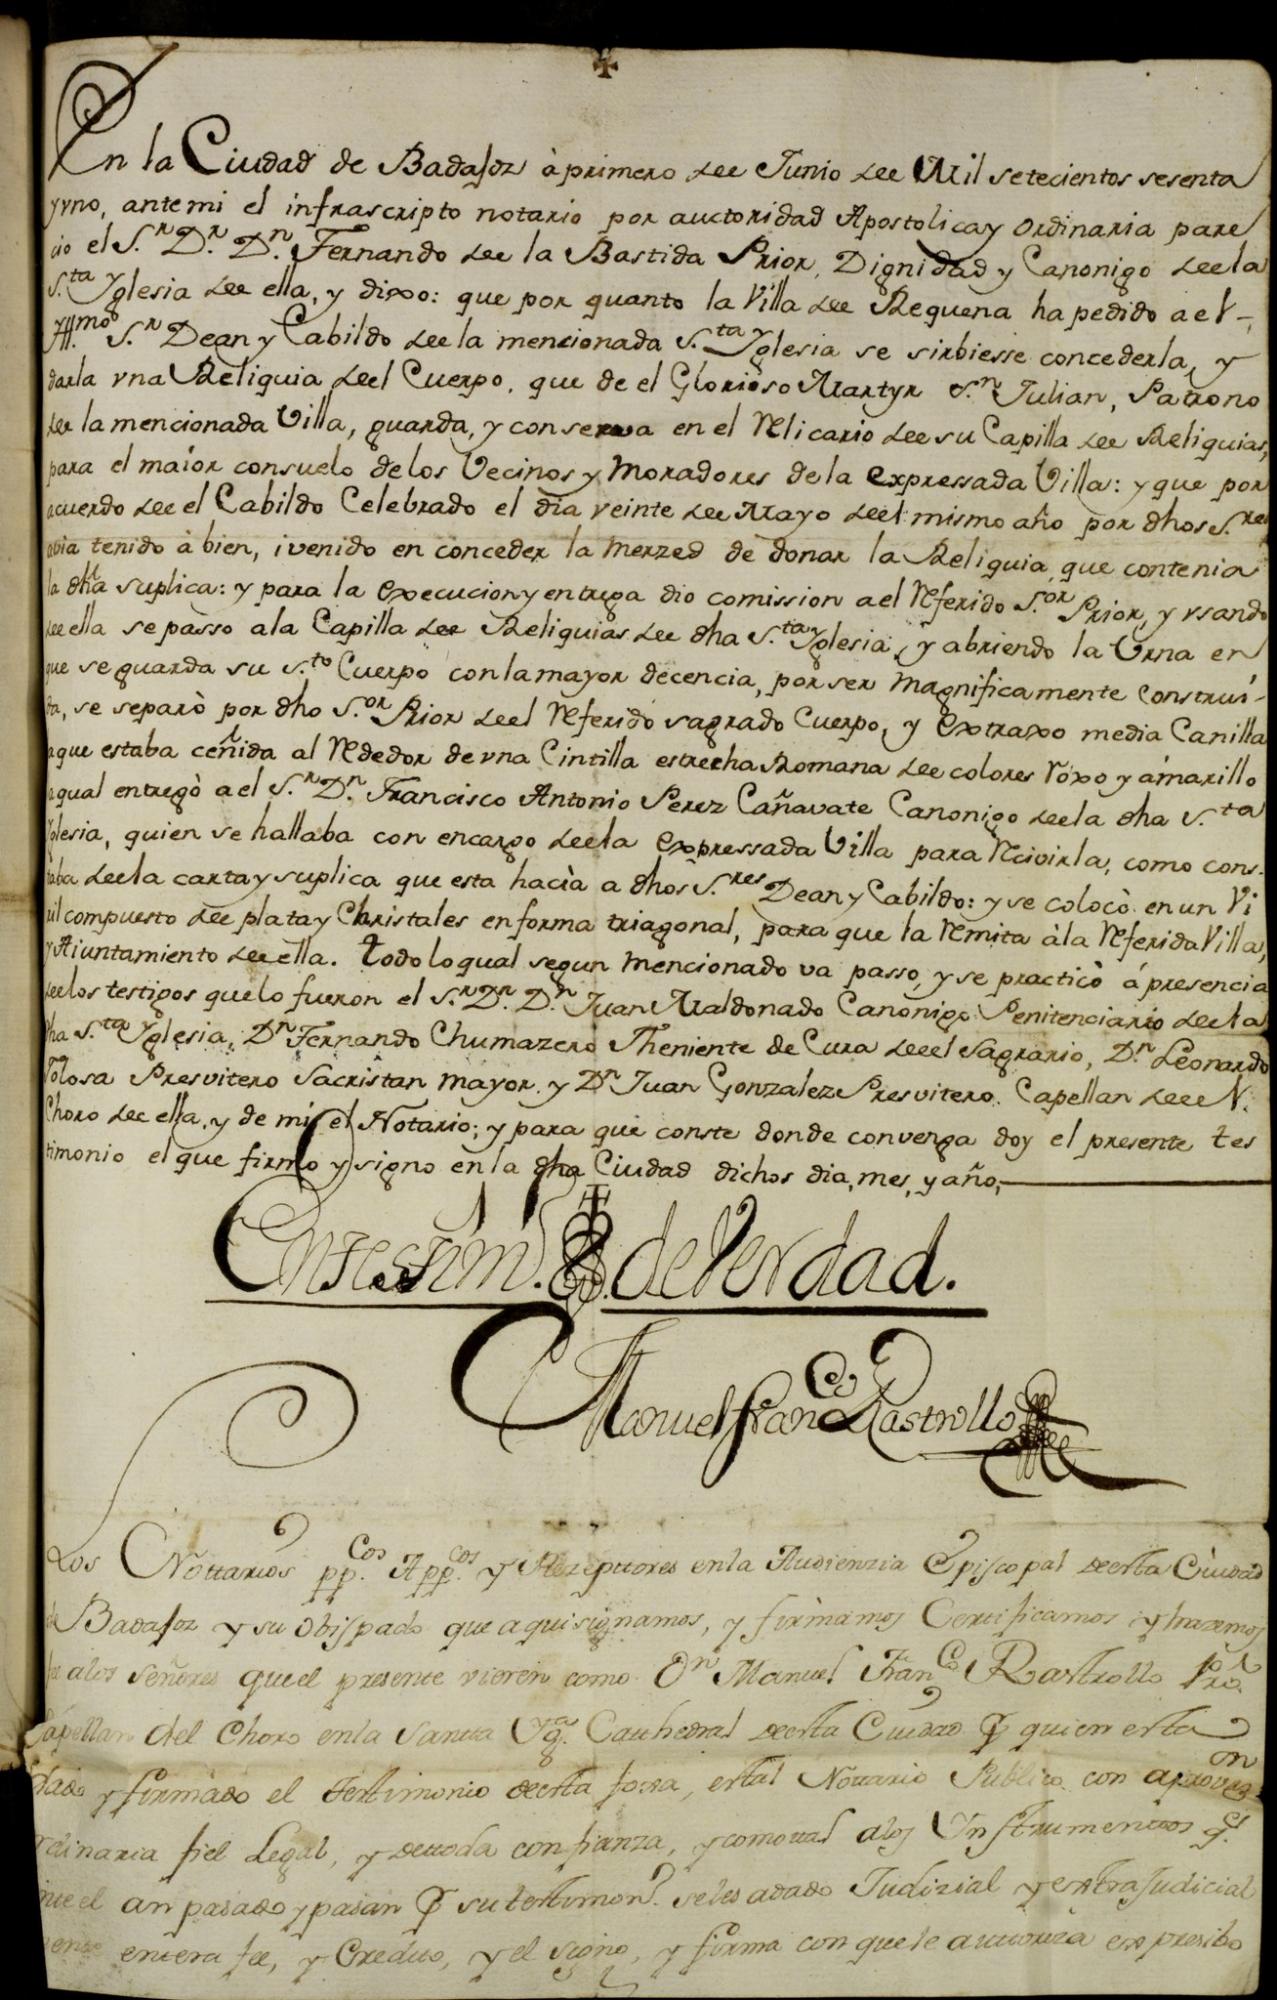 En la Ciudad de Badajoz à primero de Junio de Mil setecientos sesenta
y vno, ante mi el infrascripto notario por auctoridad Apostolica y Ordinaria pare
cio el S.r D.r D.n Fernando de la Bastida Prior, Dignidad y Canonigo de la
S.ta Yglesia de ella, y dixo: que por quanto la Villa de Requena ha pedido a el V-
Yll.mo S.r Dean y Cabildo de la mencionada S.ta Yglesia se sirbiesse concederla, y
darla vna Reliquia del Cuerpo, que de el Glorioso Martyr S.n Julian, Patrono
de la mencionada Villa, guarda, y conserva en el Relicario de su Capilla de Reliquias,
para el maior consuelo de los Vecinos y Moradores de la expressada Villa: y que por
acuerdo de el Cabildo Celebrado el dia veinte de Mayo del mismo año por dhos S.res
avia tenido à bien, i venido en conceder la merzed de donar la Reliquia, que contenia
la dha suplica: y para la execucion y entrega dio comission a el Referido S.or Prior, y vsando
de ella se passo a la Capilla de Reliquias de dha S.ta Yglesia, y abriendo la Vrna en
que se guarda su S.to Cuerpo con la mayor decencia, por ser magnificamente construi-
da, se separò por dho S.or Prior de el Referido sagrado Cuerpo, y extraxo media Canilla
a que estaba ceñida al Rededor de vna Cintilla estrecha Romana de colores Roxo y amarillo
a qual entregò a el S.r D.n Francisco Antonio Perez Cañavate Canonigo de la dha S.ta
Yglesia, quien se hallaba con encargo de la expressada Villa para Recivirla, como cons-
taba de la carta y suplica que esta hacìa a dhos S.res Dean y Cabildo: y se colocò en un Vi
ril compuesto de plata y Christales en forma triagonal, para que la Remita à la Referida Villa,
y Aiuntamiento de ella. Todo lo qual segun mencionado va passo, y se practicò á presencia
de los testigos que lo fueron el S.r D.r D.n Juan Maldonado Canonigo Penitenciario de la
dha S.ta Yglesia, D.n Fernando Chumazero Theniente de Cura de el Sagrario, D.n Leonardo
Tolosa Presvitero Sacristan mayor, y D.n Juan Gonzalez Presvitero Capellan de el N.
Choro de ella, y de mi el Notario; y para que conste donde convenga doy el presente tes
timonio el que firmo y signo en la dha Ciudad dichos dia, mes, y año,
En testim.o de Verdad.
Manuel Fran.co Rastrollo
Los Nottarios pp.cos App.cos y Rezepttores en la Audienzia Episcopal de esta Ciudad
de Badajoz y su Obispado que aqui signamos, y firmamos Certificamos y hazemos
fee a los señores que el presente vieren como D.n Manuel Fran.co Rastrollo Pro.
Capellan del Choro en la Santta Yg.a Catthedral de esta Ciudad P quien esta
dado y firmado el testimonio de esta foxa, es tal Nottario Publico con aprovaz.on
rdinaria fiel Legal, y de ttoda confianza, y como ttal a los Ynstrumenttos q.e
nte el an pasado y pasan P su testimon.o se les a dado Judizial y extrajudicial
mente entera fee, y Creditto, y el signo, y firma con que le auttoriza expresibo